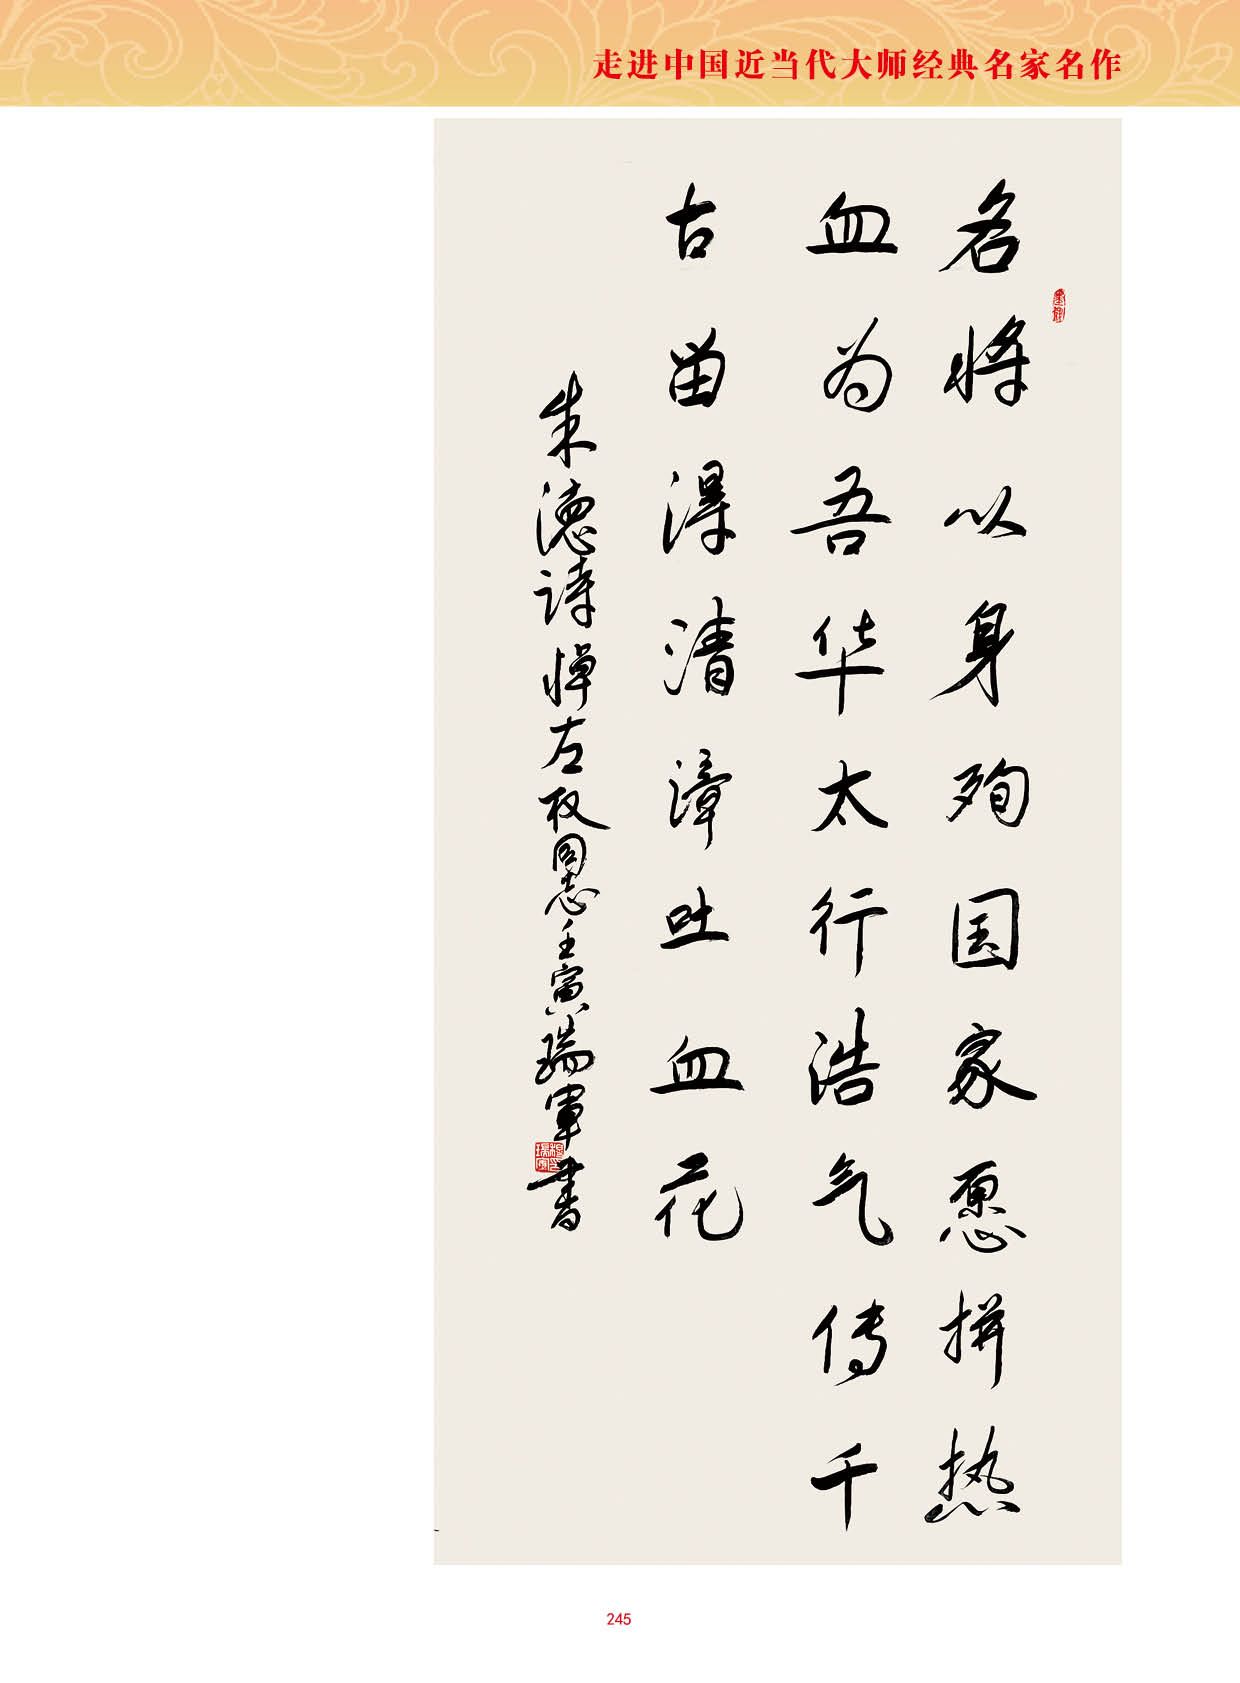 走进中国近当代大师经典名家名作
名将以身殉国家愿拼热
血为吾华太行浩气传千
古留得清漳吐血花
朱德诗悼左权同志壬寅瑞军书
245